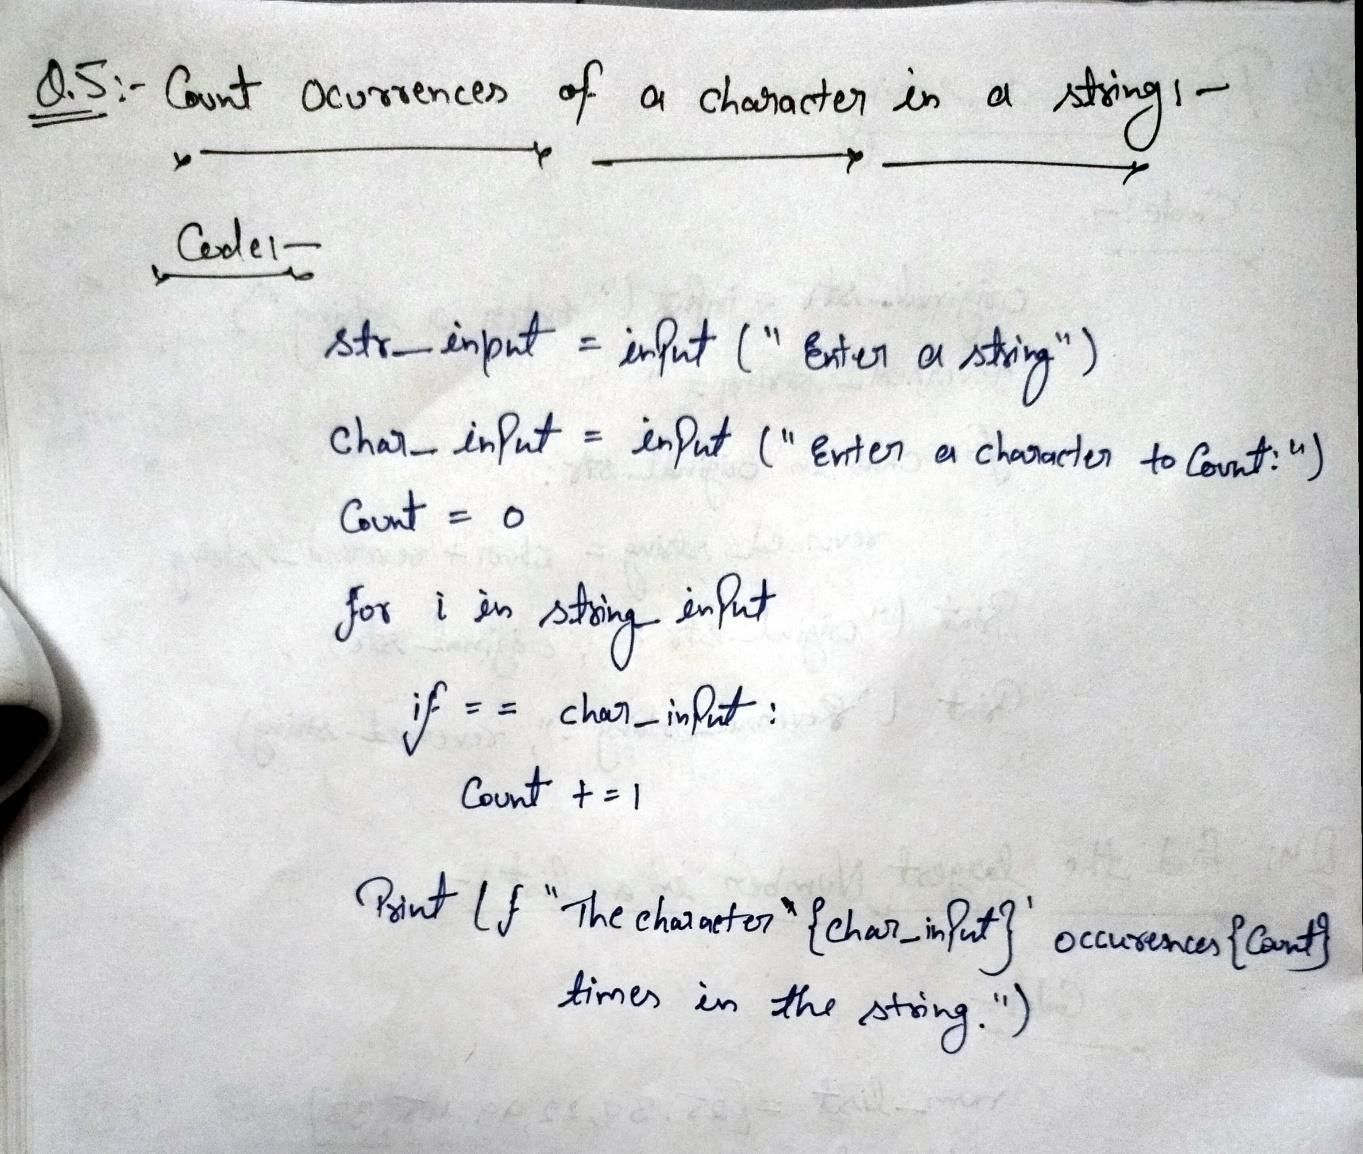 Q.5:- Count ocurrences of a character in a string:-
Code:-
str_input = input (" Enter a string")
char_input = input (" Enter a character to Count: ")
Count = 0
for i in string input
if == char_input :
Count += 1
Print (f "The character '{char_input}' occurences {Count}
times in the string.")